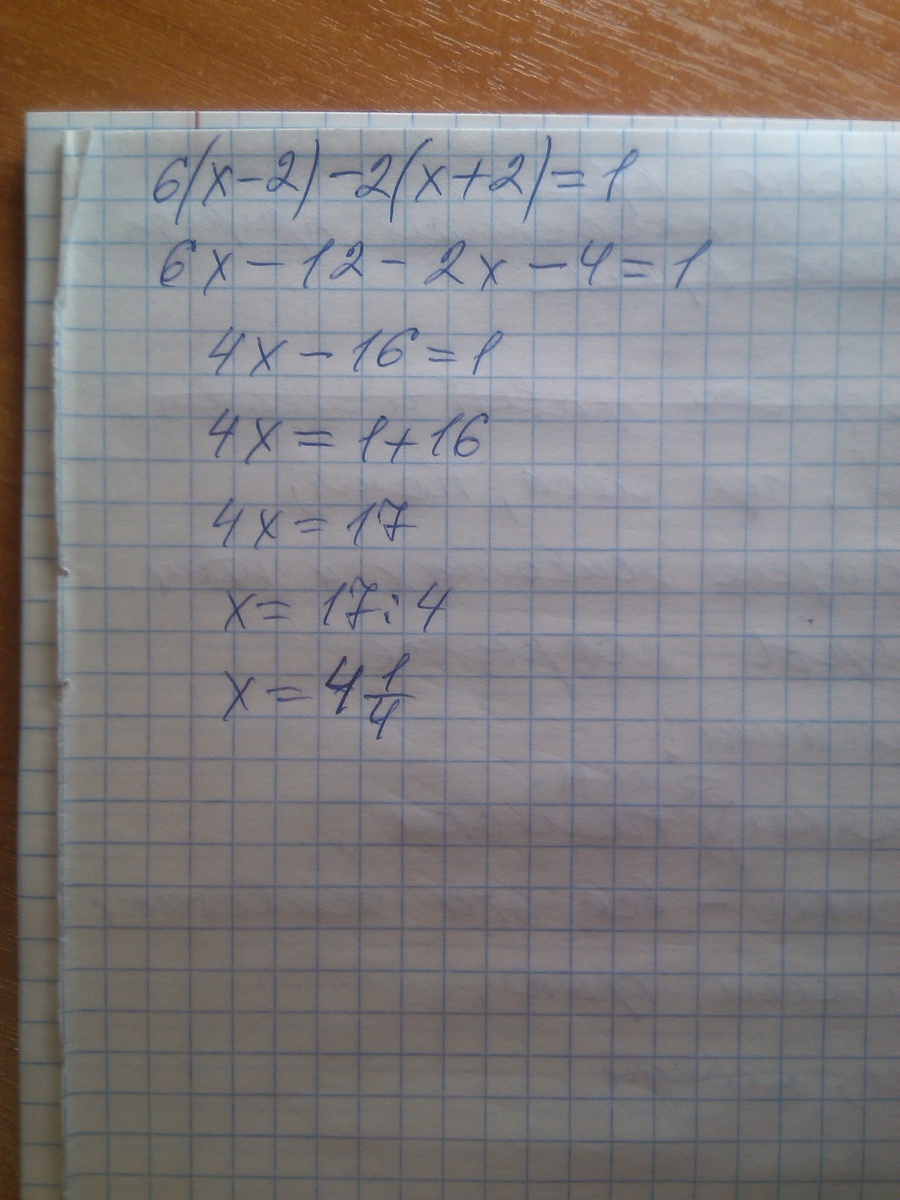 6(x-2)-2(x+2)=1
6x-12-2x-4=1
4x-16=1
4x=1+16
4x=17
x=17:4
x=4 1/4